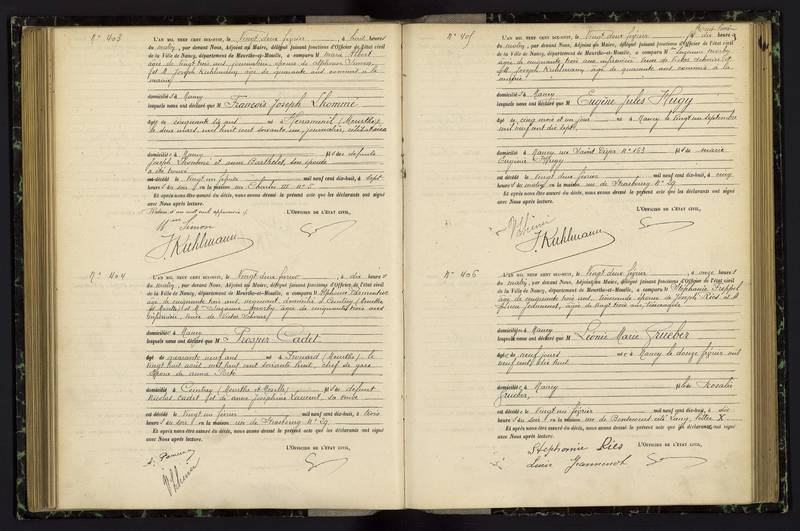 N° 403
L'AN MIL NEUF CENT DIX-HUIT, le vingt deux février, à huit heures
du matin, par devant Nous, Adjoint au Maire, délégué faisant fonctions d'Officier de l'état civil
de la Ville de Nancy, département de Meurthe-et-Moselle, a comparu M Marie Albert
âgée de vingt trois ans, journalière, épouse de Alphonse Simon,
et M Joseph Kuhlmann, âgé de quarante ans
domiciliés à Nancy
lesquels nous ont déclaré que M François Joseph Lhommé
âgé de cinquante six ans né à Hénaménil (Meurthe)
le deux mars mil huit cent soixante un, journalier, célibataire
domicilié à Nancy fils des défunts
Joseph Lhommé et Anne Barthélet, son épouse
est décédé le vingt un février mil neuf cent dix-huit, à sept
heures du soir en sa maison rue Charles III N° 5
Et après nous être assuré du décès, nous avons dressé le présent acte que les déclarants ont signé
avec Nous après lecture.
L'OFFICIER DE L'ÉTAT CIVIL,
Simon
J. Kuhlmann
N° 404
L'AN MIL NEUF CENT DIX-HUIT, le vingt deux février, à dix heures
du matin, par devant Nous, Adjoint au Maire, délégué faisant fonctions d'Officier de l'état civil
de la Ville de Nancy, département de Meurthe-et-Moselle, a comparu M
âgé de cinquante trois ans, négociant domicilié à Ceintrey (Meurthe
et Moselle) et M Suzanne âgée de cinquante trois ans
infirmière, veuve de Victor
domiciliés à Nancy
lesquels nous ont déclaré que M Prosper Cadet
âgé de quarante neuf ans né à Frouard (Meurthe) le
vingt huit août mil huit cent soixante huit, chef de gare
époux de Anna
domicilié à Ceintrey (Meurthe et Moselle) fils de défunt
Nicolas Cadet et de Anne Joséphine Laurent, sa veuve
est décédé le vingt un février mil neuf cent dix-huit, à trois
heures du soir en sa maison rue de Strasbourg N° 29
Et après nous être assuré du décès, nous avons dressé le présent acte que les déclarants ont signé
avec Nous après lecture.
L'OFFICIER DE L'ÉTAT CIVIL,
N° 405
L'AN MIL NEUF CENT DIX-HUIT, le vingt deux février, à dix heures
du matin, par devant Nous, Adjoint au Maire, délégué faisant fonctions d'Officier de l'état civil
de la Ville de Nancy, département de Meurthe-et-Moselle, a comparu M Suzanne
âgée de cinquante trois ans infirmière veuve de Victor
et M Joseph Kuhlmann, âgé de quarante ans
domiciliés à Nancy
lesquels nous ont déclaré que M Eugène Jules Hugy
âgé de cinq mois et un jour né à Nancy le vingt un septembre
mil neuf cent dix sept,
domicilié à Nancy rue Saint Dizier N° 153 fils de Marie
Eugénie Hugy
est décédé le vingt deux février mil neuf cent dix-huit, à cinq
heures du matin en sa maison rue de Strasbourg N° 29
Et après nous être assuré du décès, nous avons dressé le présent acte que les déclarants ont signé
avec Nous après lecture.
L'OFFICIER DE L'ÉTAT CIVIL,
J. Kuhlmann
N° 406
L'AN MIL NEUF CENT DIX-HUIT, le vingt deux février, à onze heures
du matin, par devant Nous, Adjoint au Maire, délégué faisant fonctions d'Officier de l'état civil
de la Ville de Nancy, département de Meurthe-et-Moselle, a comparu M Stéphanie
âgée de cinquante trois ans, épouse de Joseph Ries et M
âgée de vingt trois ans,
domiciliées à Nancy
lesquels nous ont déclaré que M Léonie Marie Grueber
âgée de neuf jours née à Nancy le douze février mil
neuf cent dix huit
domiciliée à Nancy fille de Rosalie
Grueber,
est décédée le vingt un février mil neuf cent dix-huit, à six
heures du soir en sa maison rue de cité Lang, lettre X
Et après nous être assuré du décès, nous avons dressé le présent acte que les déclarants ont signé
avec Nous après lecture.
L'OFFICIER DE L'ÉTAT CIVIL,
Stéphanie Ries